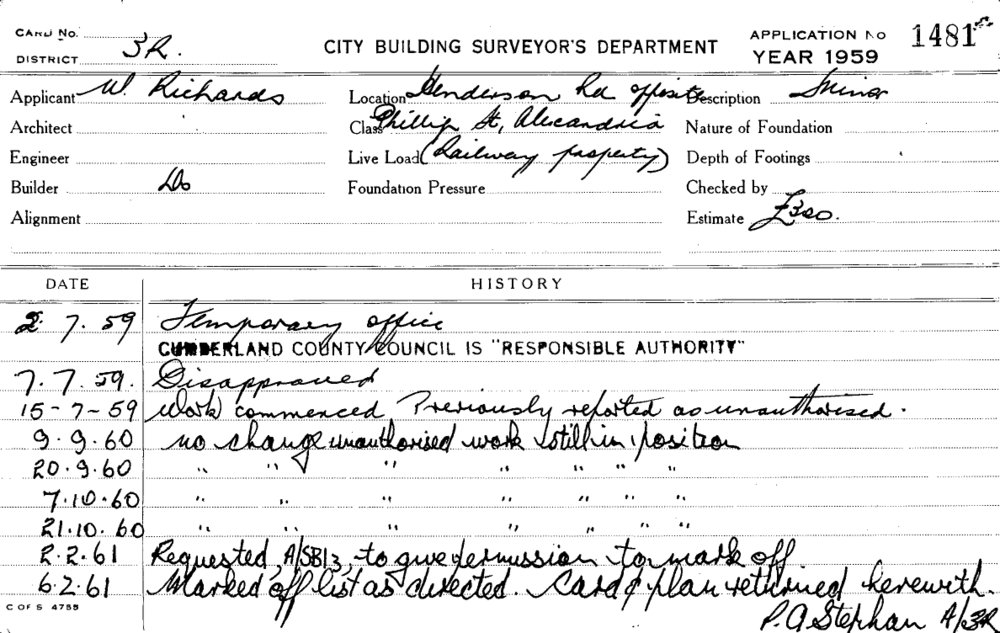 CARD No.
DISTRICT 3R.
CITY BUILDING SURVEYOR'S DEPARTMENT
APPLICATION No 1481
YEAR 1959
Applicant W. Richards
Location Henderson Rd opposite
Description Minor
Architect
Class Phillip St, Alexandria
Nature of Foundation
Engineer
Live Load (Railway property)
Depth of Footings
Builder Do
Foundation Pressure
Checked by
Alignment
Estimate £300.
DATE HISTORY
2. 7. 59 Temporary office
CUMBERLAND COUNTY COUNCIL IS "RESPONSIBLE AUTHORITY"
7. 7. 59. Disapproved
15-7-59 Work commenced Previously reported as unauthorised.
9.9.60 no change unauthorised work still in position
20.9.60 " " " " " " "
7.10.60 " " " " " " "
21.10.60 " " " " " " "
2.2.61 Requested, A/SB13, to give permission to mark off
6.2.61 Marked off list as directed. Card & plan returned herewith.
P. A Stephan A/3R
C OF S 4755